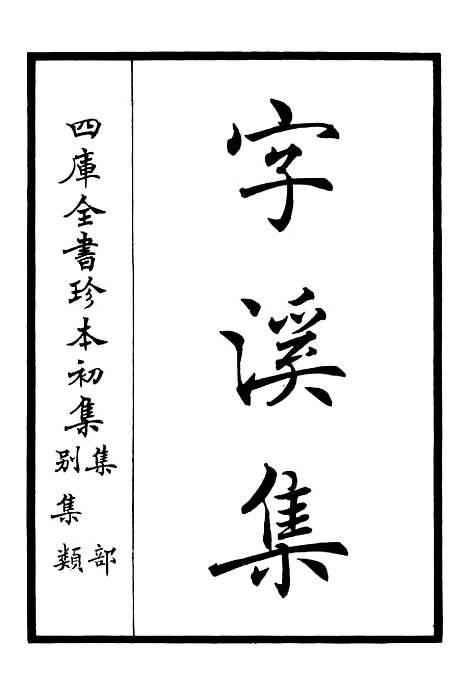 字溪集
四庫全書珍本初集
集部
別集類